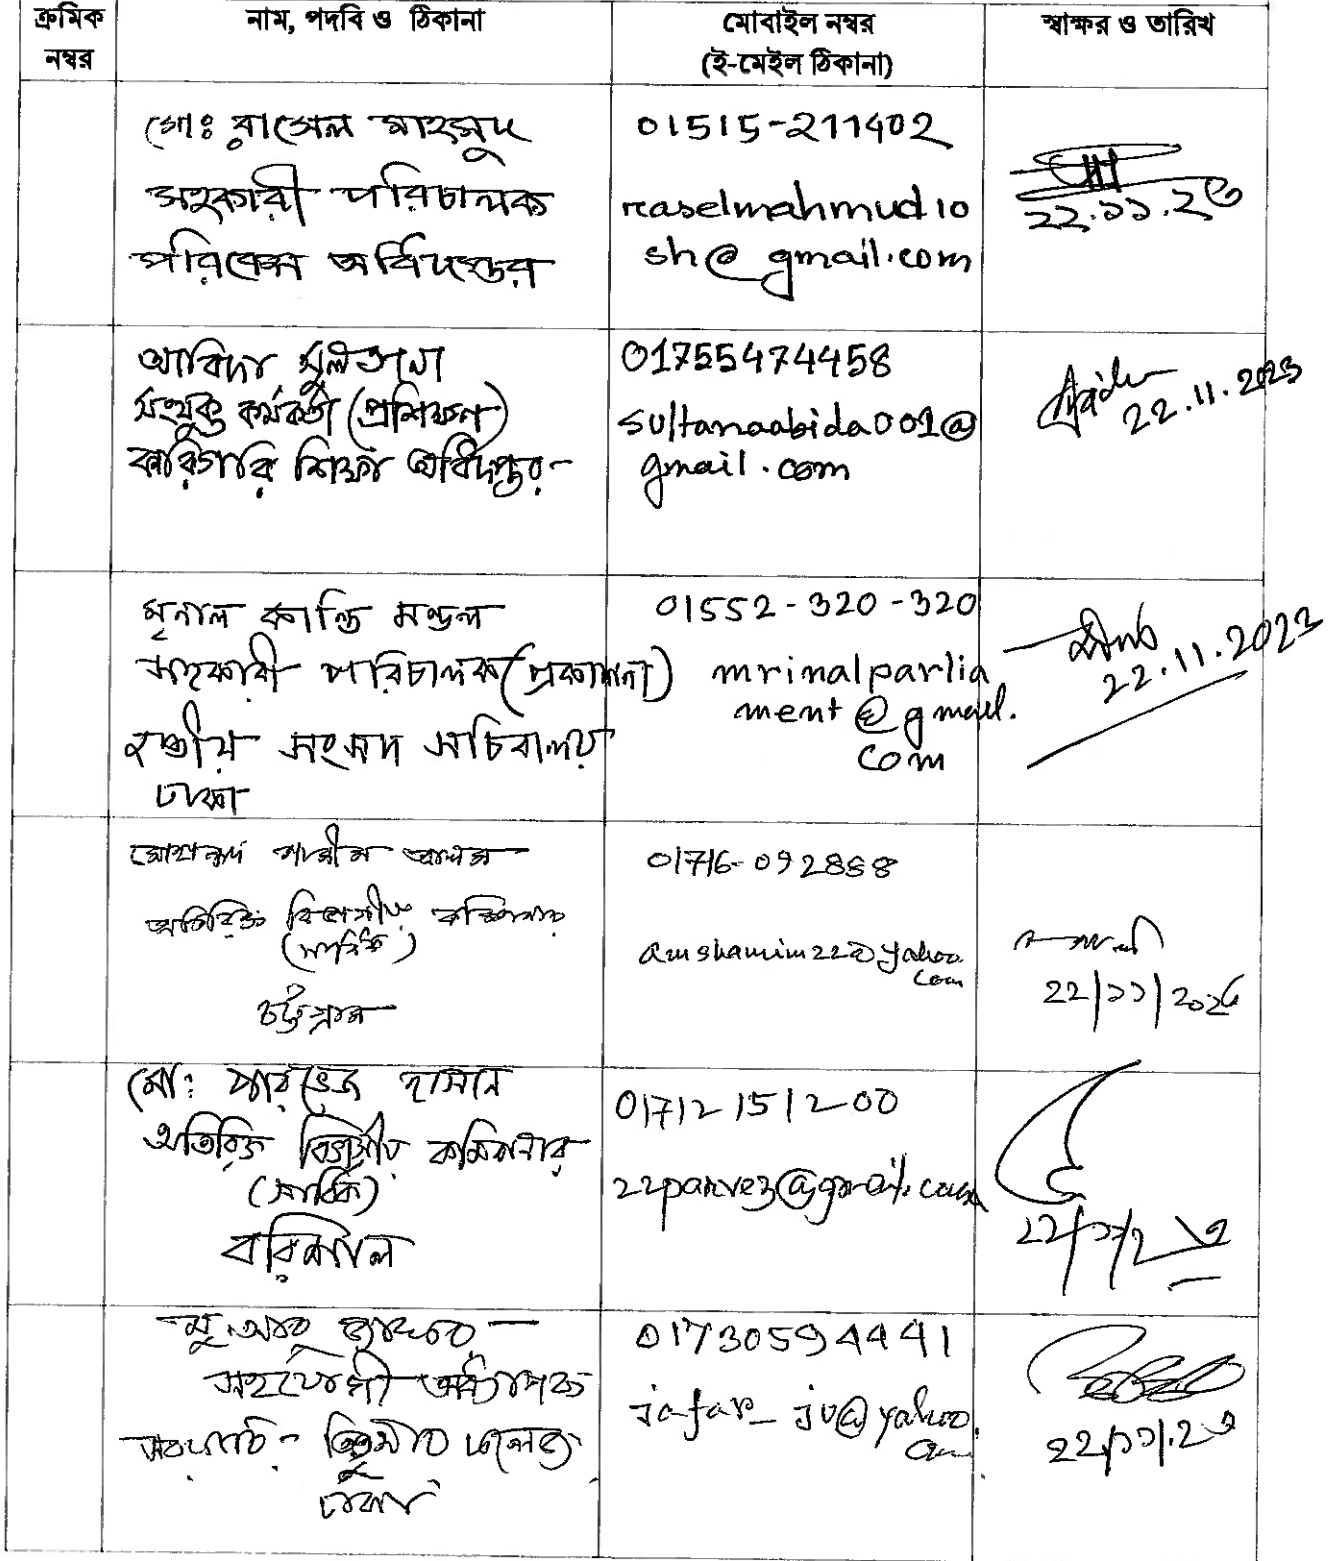 ক্রমিক নম্বর
নাম, পদবি ও ঠিকানা
মোবাইল নম্বর
(ই-মেইল ঠিকানা)
স্বাক্ষর ও তারিখ
মোঃ রাসেল মাহমুদ
সহকারী পরিচালক
পরিবেশ অধিদপ্তর
01515-211402
raselmahmud10
sh@gmail.com
22.১১.২৩
আবিদা সুলতানা
সংযুক্ত কর্মকর্তা (প্রশিক্ষণ)
কারিগরি শিক্ষা অধিদপ্তর
01755474458
sultanaabida001@
gmail.com
22.11.2023
মৃনাল কান্তি মন্ডল
সহকারী পরিচালক (প্রকাশনা)
জাতীয় সংসদ সচিবালয়
ঢাকা
01552-320-320
mrinalparlia
ment@gmail.
com
22.11.2023
মোহাম্মদ শামীম আলম
অতিরিক্ত বিভাগীয় কমিশনার
(সার্বিক)
চট্টগ্রাম
amshamim22@yahoo.
com
22/১১/২০২৩
মো: পারভেজ হাসান
অতিরিক্ত বিভাগীয় কমিশনার
(সার্বিক)
বরিশাল
01712151200
22parvez@gmail.com
২২/১১/২৩
মু. আবু জাফর
সহযোগী অধ্যাপক
সরকারি তিতুমীর কলেজ
ঢাকা
01730594441
jafar_ju@yahoo.
com
২২/১১/.২৩